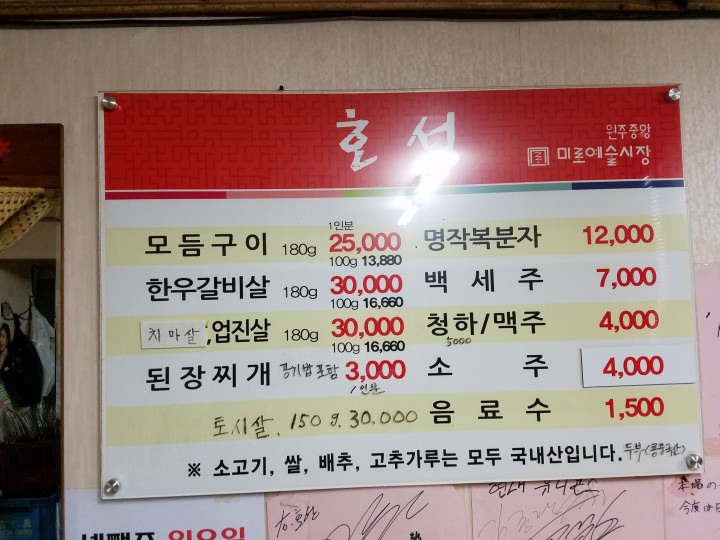 호섭
원주중앙
미로예술시장
1인분
모듬구이 180g 25,000
100g 13,880
한우갈비살 180g 30,000
100g 16,660
치마살,업진살 180g 30,000
100g 16,660
된장찌개 공기밥포함 3,000
1인분
토시살. 150g. 30.000
명작복분자 12,000
백세주 7,000
청하/맥주 4,000
5000
소주 4,000
음료수 1,500
※ 소고기, 쌀, 배추, 고추가루는 모두 국내산입니다. 두부(콩중국산)
넷째주 일요일